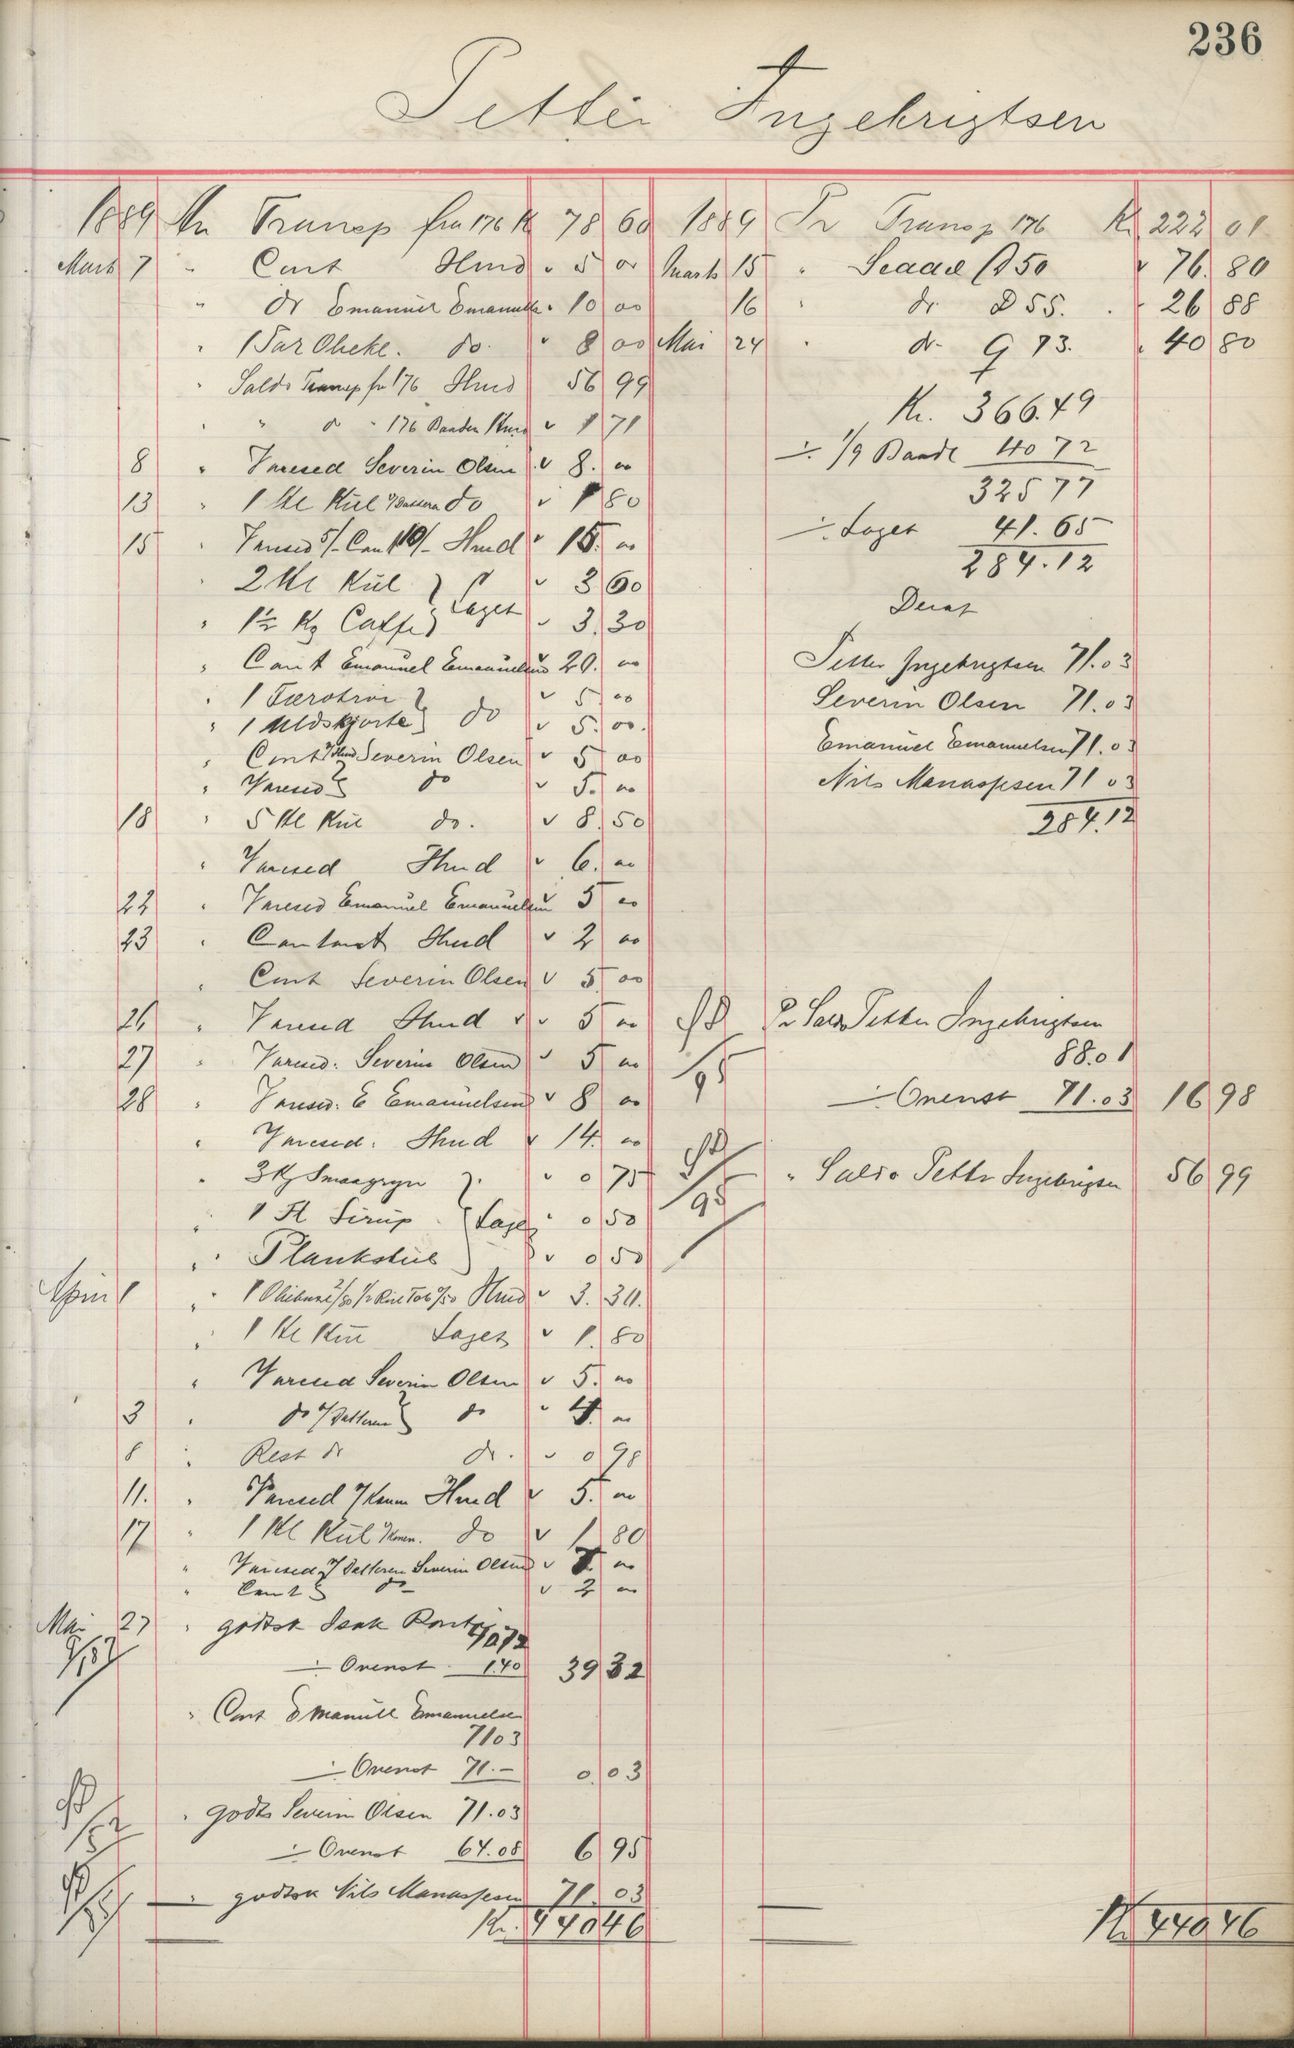 236
Petter Ingebrigtsen
1889 An Transp fra 176 K 78 60
Marts 7 " Cont Hmd " 5 00
" do Emanuel Emanuels. " 10 00
" 1 Par do. " 8 00
" Saldo Transp fr 176 Hmd 56 99
" " do " 176 Baaden Hmd " 1 71
8 " Varesed Severin Olsen " 8. 00
13 " 1 Hl Kul Datteren do " 1 80
15 " Varesed 5/- Cont 10/- Hmd " 15. 00
" 2 Hl Kul } Laget " 3 60
" 1½ Kg Caffe } " 3. 30
" Cont Emanuel Emanuelsen " 20. 00
" 1 } " 5. 00
" 1 Uldskjorte } do " 5. 00.
" Cont Severin Olsen " 5 00
" Varesed } do " 5. 00
18 " 5 Hl Kul do. " 8. 50
" Varesed Hmd " 6. 00
22 " Varesed Emanuel Emanuelsen " 5 00
23 " Contant Hmd " 2 00
" Cont Severin Olsen " 5. 00
26 " Varesed Hmd " " 5 00
27 " Varesed: Severin Olsen " 5 00
28 " Varesed: E Emanuelsen " 8 00
" Varesed: Hmd " 14. 00
" 3 Kg Smaagryn } " 0 75
" 1 Fl Sirup } Laget " 0 50
" Plankstub } " 0 50
April 1 " 1 Hmd " 3. 30.
" 1 Hl Kul Laget " 1. 80
" Varesed Severin Olsen " 5. 00
3 " do Datteren } do " 4. 00
8 " Rest do do. " 0 98
11. " Varesed Konen Hmd " 5. 00
17 " 1 Hl Kul Konen. do " 1 80
" Varesed Datteren Severin Olsen " 7. 00
" Cont } do " 2 00
Mai 27 " godtsk Isak
40 72
÷ Ovenst 1.40 39 32
" Cont Emanuel Emanuelsen
71 03
÷ Ovenst 71.- 0. 03
" godts Severin Olsen 71.03
÷ Ovenst 64.08 6 95
" godtsk Nils Manassesen 71. 03
Kr. 440 46
1889 Pr Transp 176 Kr. 222 01
Marts 15 " Seddel D 50 " 76. 80
16 " do D 55. " 26 88
Mai 24 " do G 73. " 40 80
Kr. 366.49
÷ 1/9 Baade 40 72
325 77
÷ Laget 41.65
284.12
Deraf
Petter Ingebrigtsen 71.03
Severin Olsen 71.03
Emanuel Emanuelsen 71.03
Nils Manassesen 71 03
284.12
Pr Saldo Petter Ingebrigtsen
88.01
95
÷ Ovenst 71.03 16 98
" Saldo Petter Ingebrigtsen 56 99
95
Kr. 440 46